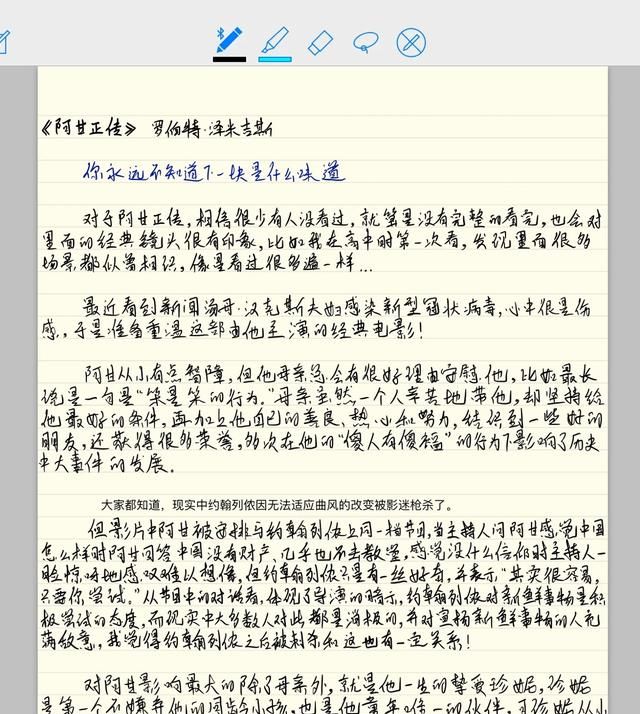 《阿甘正传》 罗伯特·泽米吉斯
你永远不知道下一块是什么味道
对于阿甘正传，相信很少有人没看过，就算是没有完整的看完，也会对
里面的经典镜头很有印象，比如我在高中时第一次看，发现里面很多
场景都似曾相识，像是看过很多遍一样...
最近看到新闻汤母·汉克斯夫妇感染新型冠状病毒，心中很是伤
感，于是准备重温这部由他主演的经典电影！
阿甘从小有点智障，但他母亲总会有很好理由安慰他，比如最长
说是一句是“笨是笨的行为。”母亲虽然一个人辛苦地带他，却坚持给
他最好的条件，再加上他自己的善良、热心和努力，结识到一些好的
朋友，还获得很多荣誉，多次在他的“傻人有傻福”的行为下影响了历史
中大事件的发展。
大家都知道，现实中约翰列侬因无法适应曲风的改变被影迷枪杀了。
但影片中阿甘被安排与约翰列侬上同一档节目，当主持人问阿甘感觉中国
怎么样时阿甘回答中国没有财产、几乎也不去教堂，感觉没什么信仰时主持人一
脸惊讶地感叹难以想像，但约翰列侬只是有一丝好奇，并表示“其实很容易，
只要你尝试。”从节目中的对话看，体现了导演的暗示，约翰列侬对新鲜事物是积
极尝试的态度，而现实中大多数人对此都是消极的，并对宣扬新鲜事物的人充
满敌意，我觉得约翰列侬之后被刺杀和这也有一定关系！
对阿甘影响最大的除了母亲外，就是他一生的挚爱珍妮，珍妮
是第一个不嫌弃他的同龄小孩，也是他童年唯一的伙伴，可珍妮从小